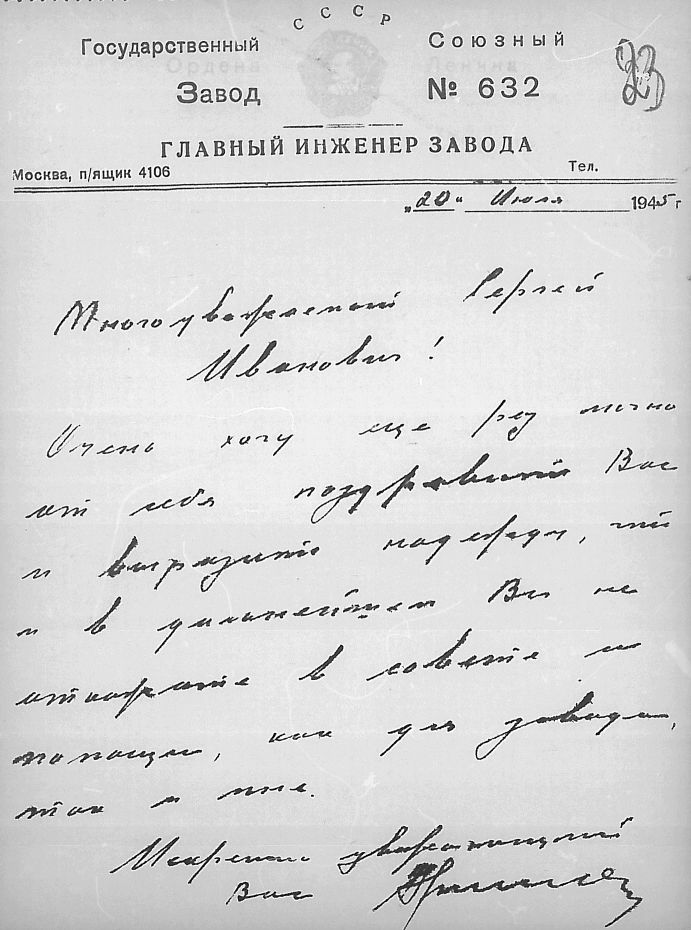 СССР
Государственный Союзный
Ордена Ленина
Завод № 632
23
ГЛАВНЫЙ ИНЖЕНЕР ЗАВОДА
Москва, п/ящик 4106 Тел.
„20" Июля 1945 г
Многоуважаемый Сергей
Иванович!
Очень хочу еще раз лично
от себя поздравить Вас
и выразить надежду, что
и в дальнейшем Вы не
откажете в совете и
помощи, как для завода,
так и мне.
Искренно уважающий
Вас